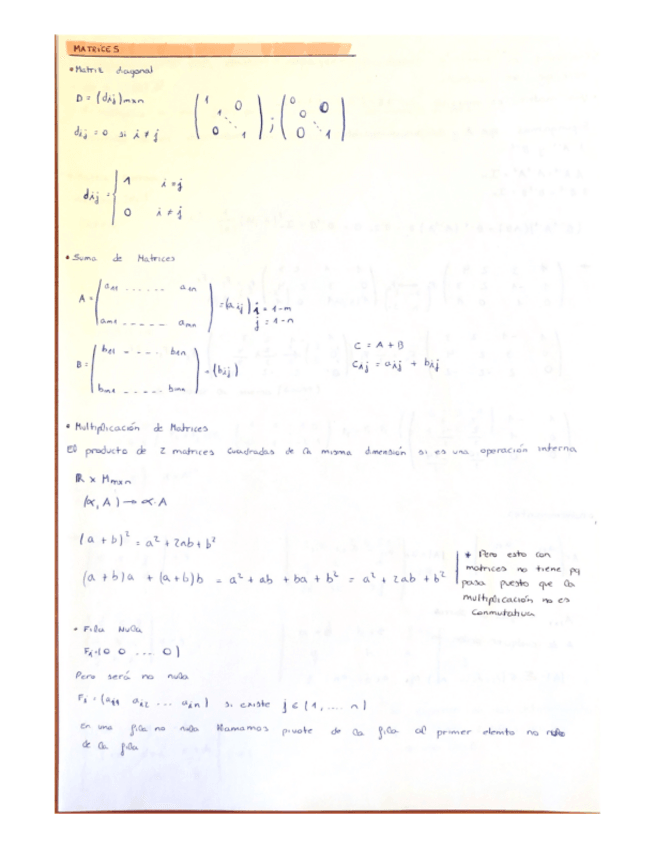 MATRICES
• Matriz diagonal
D = (dij)mxn
dij = 0 si i ≠ j
( 1 0 1 ⋱ 0 1 ) ; ( 0 0 0 ⋱ 0 1 )
dij = { 1 i = j
0 i ≠ j
• Suma de Matrices
A = ( a11 ...... a1n
am1 ..... amn ) = (aij) i = 1-m
j = 1-n
B = ( b11 - .... b1n
bm1 ..... bmn ) = (bij)
C = A + B
cij = aij + bij
• Multiplicación de Matrices
El producto de 2 matrices cuadradas de la misma dimensión si es una operación interna
ℝ x Mmxn
(α, A) → α·A
(a + b)² = a² + 2ab + b²
(a + b)a + (a + b)b = a² + ab + ba + b² = a² + 2ab + b²
* Pero esto con
matrices no tiene pq
pasa puesto que la
multiplicación no es
conmutativa
• Fila Nula
Fi = (0 0 ... 0)
Pero será no nula
Fi = (ai1 ai2 ... ain) si existe j ∈ (1, .... n)
en una fila no nula llamamos pivote de la fila al primer elemto no nulo
de la fila